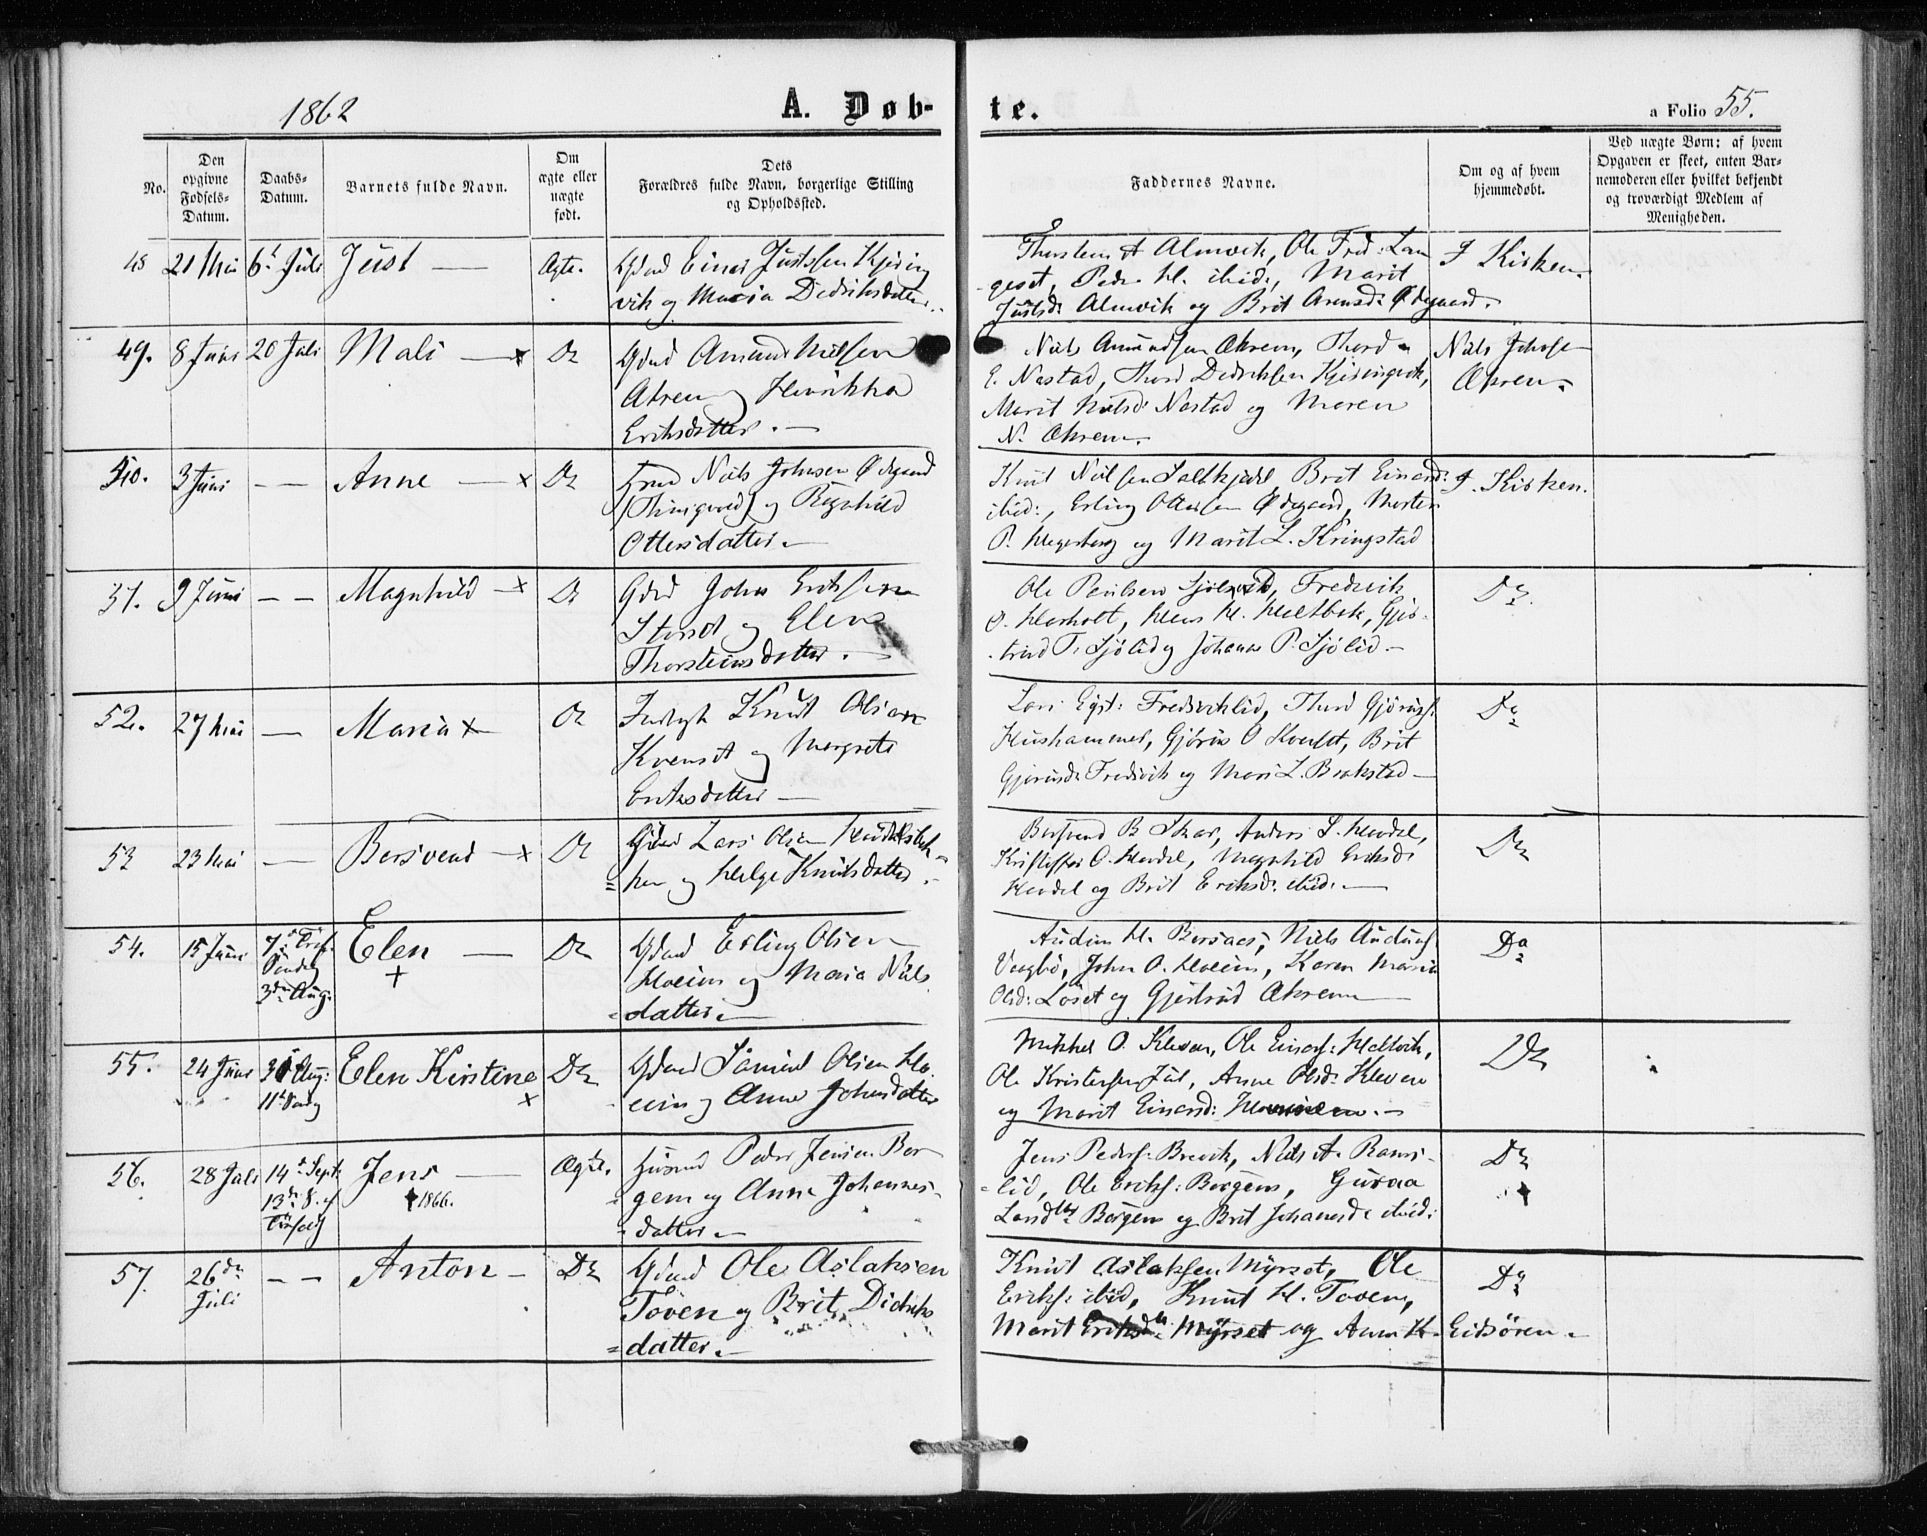 1862
A. Døb-
te.
a Folio 55.
No.
Den
opgivne
Fødsels-
Datum.
Daabs-
Datum.
Barnets fulde Navn.
Om
ægte eller
uægte
født.
Dets
Forældres fulde Navn, borgerlige Stilling
og Opholdssted.
Faddernes Navne.
Om og af hvem
hjemmedøbt.
Ved uægte Børn: af hvem
Opgaven er skeet, enten Bar-
nemoderen eller hvilket bekjendt
og troværdigt Medlem af
Menigheden.
48 21 Mai 6t Juli Just — Ægte. Gdmd Einar Justsen Kjöring
vik og Maria Didriksdatter.
Thorstein A Almvik, Ole Fred: Lan
geset, Peder H. ibid:, Marit
Justsd: Almvik og Brit Arensd: Ødegaard.
I Kirken.
49. 8 Juni 20 Juli Mali — x Do Gdmd Amund Nilsen
Akrem og Henrikka
Eriksdatter. —
Niels Amundsen Økrem, Thord
E. Nastad, Thord Didriksen Kjöringvik,
Marit Nilsd: Nastad og Maren
N. Økrem.
Niels Johns
Økrem.
50. 3 Juni — — Anne — x Do Niels Johnsen Ødegaard
og Ragnhild
Ottersdatter. —
Knut Nielsen Saltkjel, Brit Einarsd:
ibid:, Erling Ottersen Ødegaard, Morten
P. Hegerberg og Marit L. Kringstad
I Kirken.
51. 9 Juni — — Magnhild — x Do Gdmd John Eriksen
Storset og Elen
Thorsteinsdatter. —
Ole Paulsen Sjölid, Fredrik
O. Horholt, H. Meltbak, Gjer-
trud T. Sjölid og Johanna P. Sjölid —
Do.
52. 27 Mai — Maria x Do Knut Olsen
Kvenset og Margrete
Eriksdatter —
Lars Eyst: Fredrikslid, Thord Gjöruls:
Hushammer, Gjörul O Kvenset, Brit
Gjörulsd: Fredsvik og Mari L. Brakstad —
Do
53 23 Mai — Bersvend — x Do Gdmd Lars Olsen
og Helge Knutsdatter.
Bersvend B Skar, Anders L. Hendel,
Kristoffer O. Hendel, Magnhild Eriksd:
Hendel og Brit Eriksd: ibid: —
Do
54. 15 Juni 7de S. e Tref.
Söndag
3de Aug. Elen —
+ Do Gdmd Erling Olsen
Hoeim og Maria Niels
datter. —
Audun H. Bersaas, Niels Auduns
Vaagbö, John O. Hoeim, Karen Maria
Olsd: Löset og Gjertrud Økrem —
Do
55. 24 Juni 31 Aug:
11te Sndg Elen Kirstine
x Do Gdmd Simen Olsen Ho-
eim og Anne Johnsdatter
Mikkel O. Kleven, Ole Einars: Meltvik,
Ole Kristensen Jul, Anne Olsd: Kleven
og Marit Einarsd:
Do
56. 28 Juli 14de Sept:
13de S. ef
Trefoldg Jens —
† 1866. Ægte. Husmd Peder Jensen Bor-
gen og Anne Johannes-
datter. —
Jens Peders: Brevik, Niels A. Rams-
lid, Ole Eriks: Borgen, Guroa
Larsdtr Borgen og Brit Johannesd: ibid:
Do
57. 26de
Juli — — Anton — Do Gdmd Ole Aslaksen
Toven og Brit Didriks
datter. —
Knut Aslaksen Myrset, Ole
Eriks: ibid, Knut H. Toven,
Marit Eriksdtr Myrset og Anne K. Eidsören.
Do